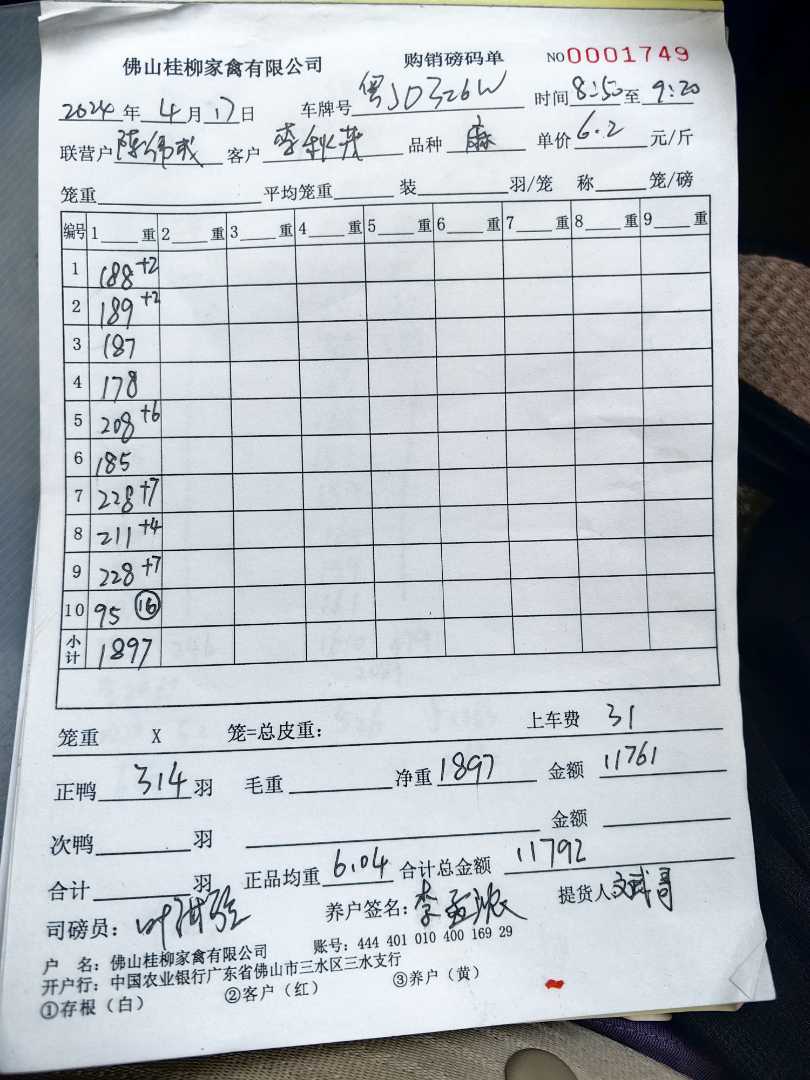 佛山桂柳家禽有限公司 购销磅码单 NO0001749
2024年4月17日 车牌号 粤J07326W 时间8:50至9:20
联营户 陈伟成 客户 李秋茂 品种 麻 单价6.2元/斤
笼重 平均笼重 装 羽/笼 称 笼/磅
编号 1 重 2 重 3 重 4 重 5 重 6 重 7 重 8 重 9 重
1 188+2
2 189+2
3 187
4 178
5 208+6
6 185
7 228+7
8 211+4
9 228+7
10 95 16
小计 1897
笼重 X 笼=总皮重: 上车费 31
正鸭 314 羽 毛重 净重1897 金额 11761
次鸭 羽 金额
合计 羽 正品均重 6.04 合计总金额 11792
司磅员: 养户签名: 李 提货人 哥
户 名: 佛山桂柳家禽有限公司 账号: 444 401 010 400 169 29
开户行: 中国农业银行广东省佛山市三水区三水支行
①存根(白) ②客户(红) ③养户(黄)